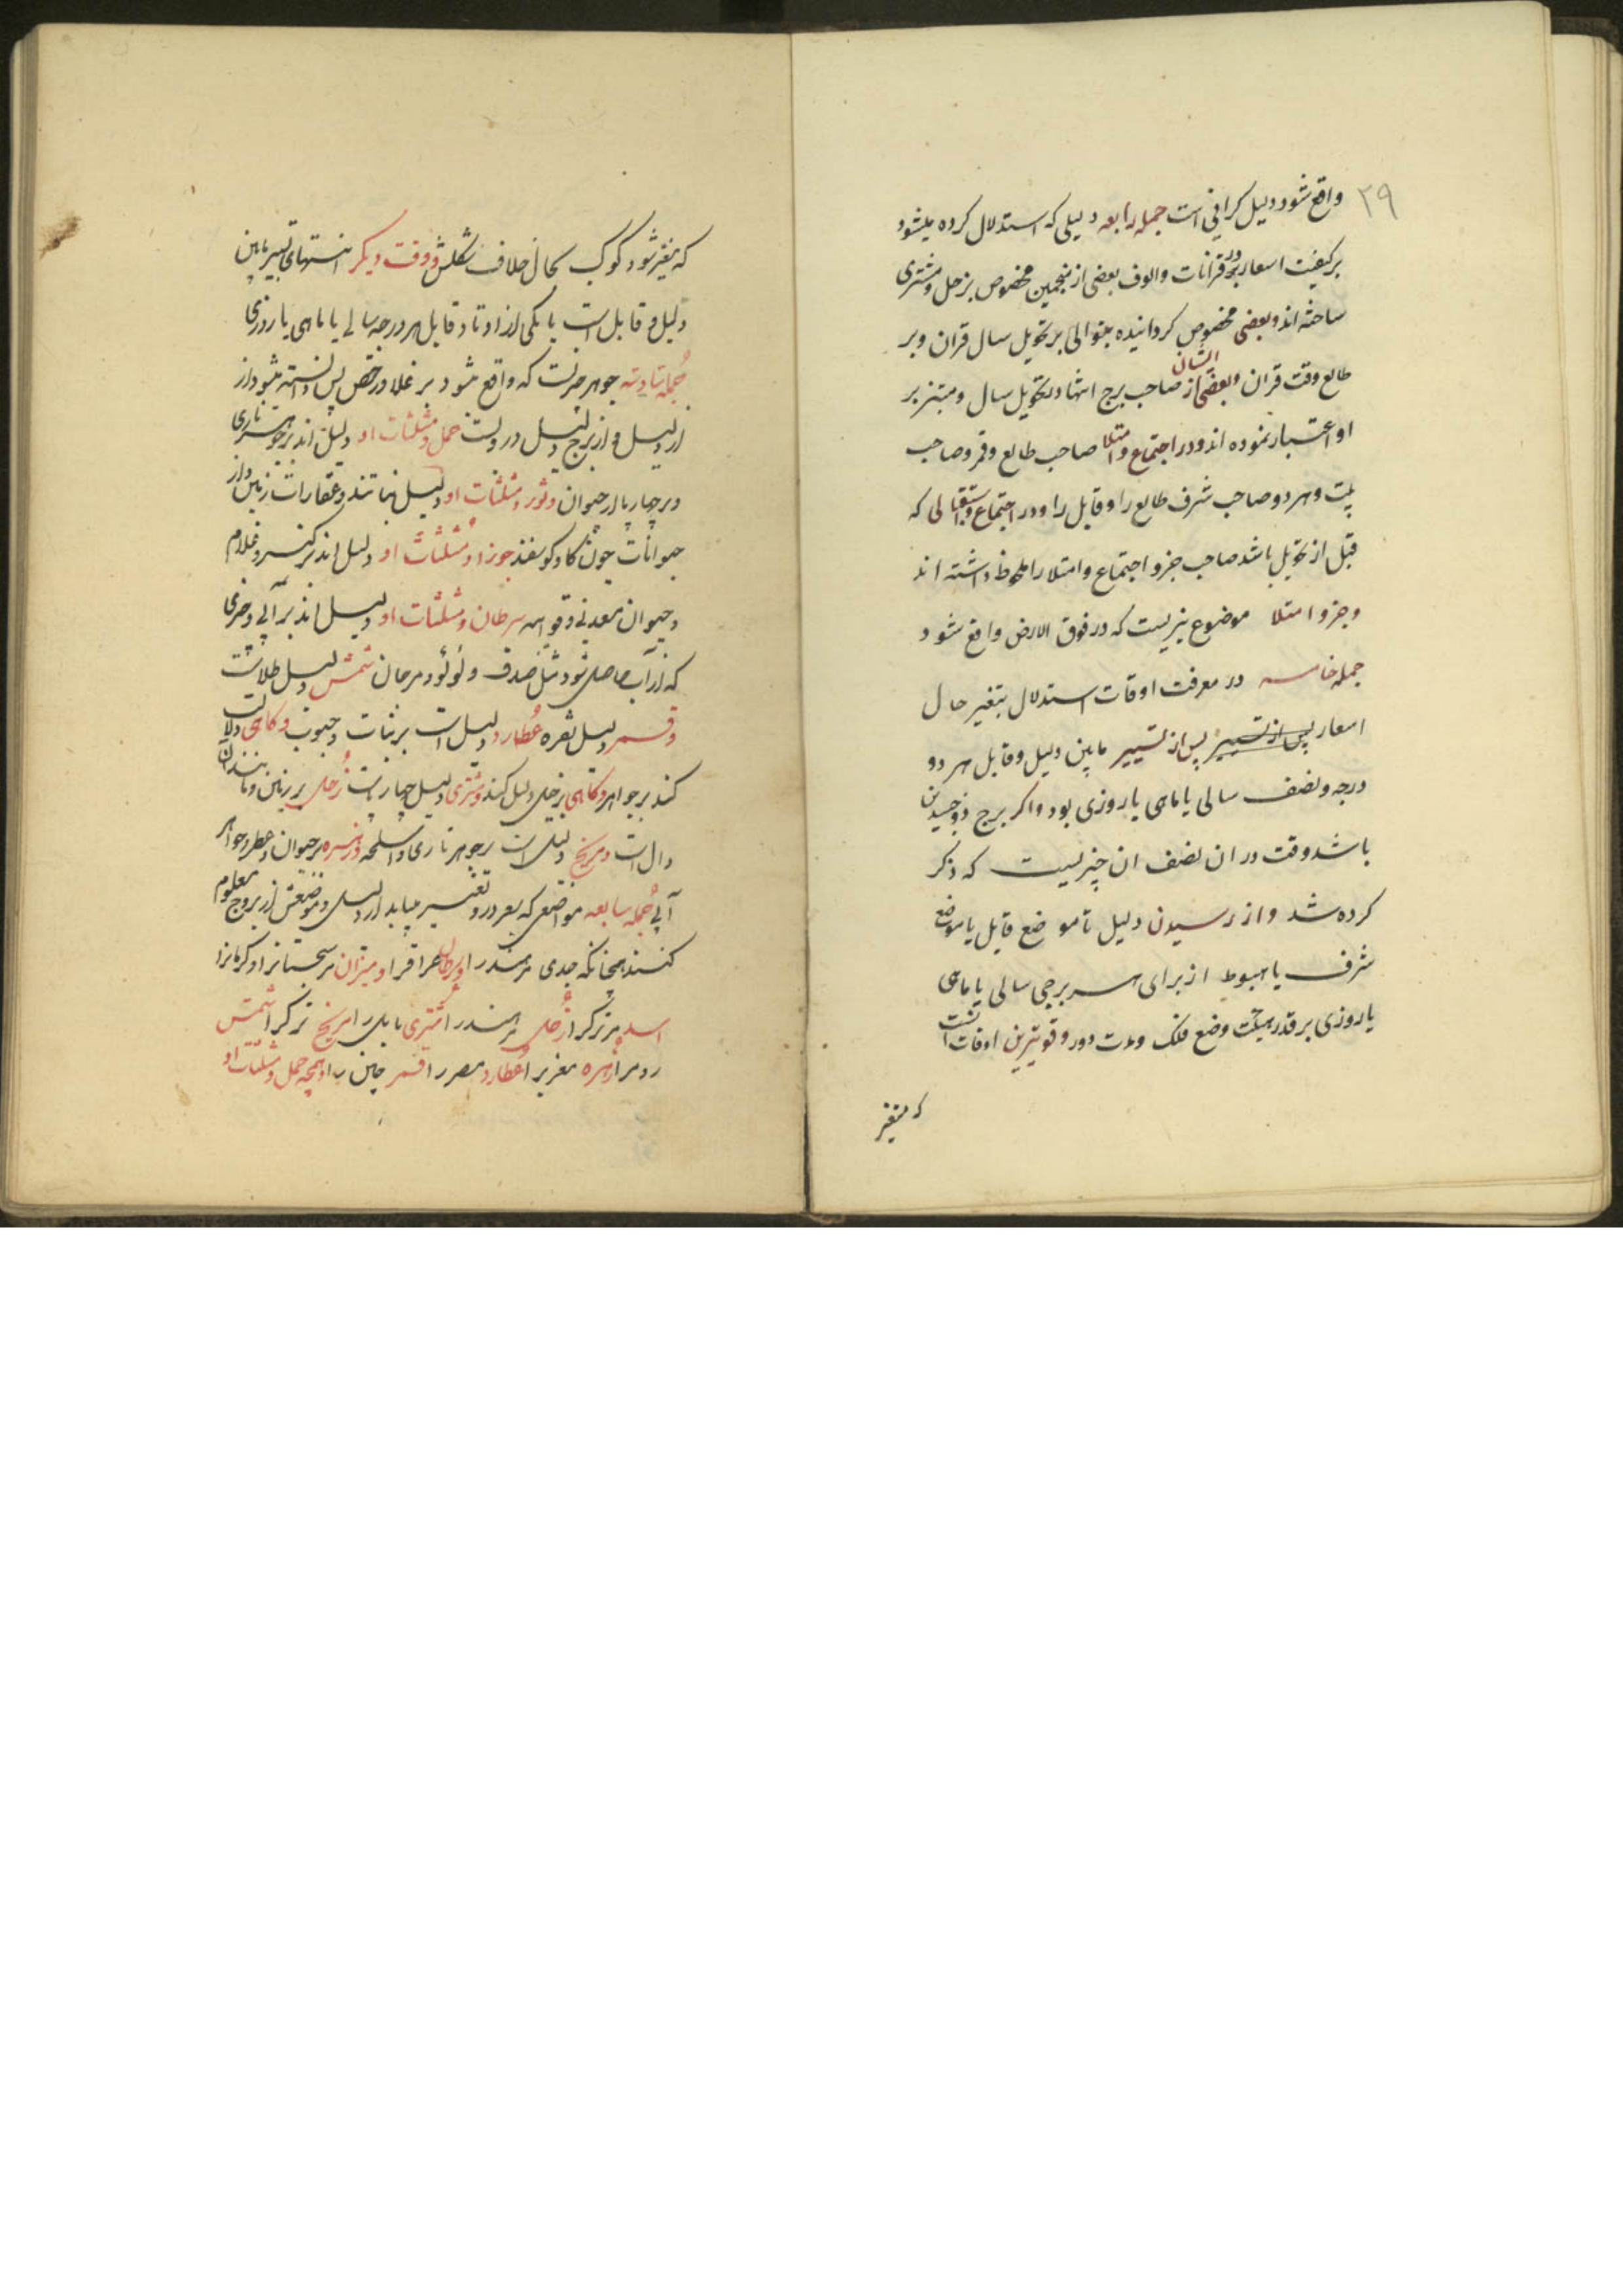 ۲۹
واقع شود دلیل کرانی است جمله رابعه دلیلی که استدلال کرده میشود
بر کیفیت اسعار در قرانات والوف بعضی از منجمین مخصوص بزحل و مشتری
ساخته اند و بعضی مخصوص کردانیده بتوالی بر تحویل سال قران و بر
طالع وقت قران و بعضی از ایشان صاحب برج انتها و تحویل سال و مبتز بر
او اعتبار نموده اند و در اجتماع و امتلا صاحب طالع و قمر و صاحب
بیت و هر دو صاحب شرف طالع را و قابل را و در اجتماع و استقبالی که
قبل از تحویل باشد صاحب جزو اجتماع و امتلا را ملحوظ داشته اند
و جزو امتلا موضوع نیریست که در فوق الارض واقع شود
جمله خامسه در معرفت اوقات استدلال بتغیر حال
اسعار پس از تسییر پس از تسییر مابین دلیل و قابل هر دو
درجه و نصف سالی یا ماهی یا روزی بود و اکر برج ذوجسدین
باشد وقت در ان نصف ان چیزیست که ذکر
کرده شد و از رسیدن دلیل تا موضع قابل یا موضع
شرف یا هبوط از برای هر برجی سالی یا ماهی
یا روزی بر قدر هیئت وضع فلک و مدت دور و قویترین اوقات انست
که متغیر
که متغیر شود کوکب بحال خلاف شکلش و وقت دیکر انتهای تسییر مابین
دلیل و قابل است با یکی از اوتاد قابل هر درجه سالی یا ماهی یا روزی
جمله سادسه جوهر چیزیست که واقع شود بر غلا و رخص پس دانسته شود از
از دلیل و از برج دلیل در وست حمل و مثلثات او دلیل اند بر جوهر ناری
و بر چهارپا از حیوان و ثور و مثلثات او دلیل نباتند و عقارات زمین و از
حیوانات چون کاو کوسفند جوزا و مثلثات او دلیل اند بر کنیز و غلام
و حیوان معدنی و قوایم سرطان و مثلثات او دلیل اند بر آبی و چیزی
که از آب حاصل شود مثل صدف و لولو و مرجان شمس دلیل طلاست
و قمر دلیل نقره عطارد دلیل است بر نبات و حبوب و کاهی دلالت
کند بر جواهر و کاهی بر زحل دلیل کند و مشتری دلیل چهارپاست زحل بر زمین و مانند آن
دال است و مریخ دلیل است بر جوهر ناری و اسلحه و زهره بر حیوان و عطر و جواهر
آبی جمله سابعه مواضعی که سعر در و تغییر میابد از دلیل و موضعش از بروج معلوم
کنند همچنانکه جدی مر هند را و سرطان عراق را و میزان مر سجستانرا و کرمانرا
اسد مر ترک را زحل مر هند را مشتری بابل را مریخ ترک را شمس
روم را زهره مغرب را عطارد مصر را قمر چین را و همچه حمل و مثلثات او